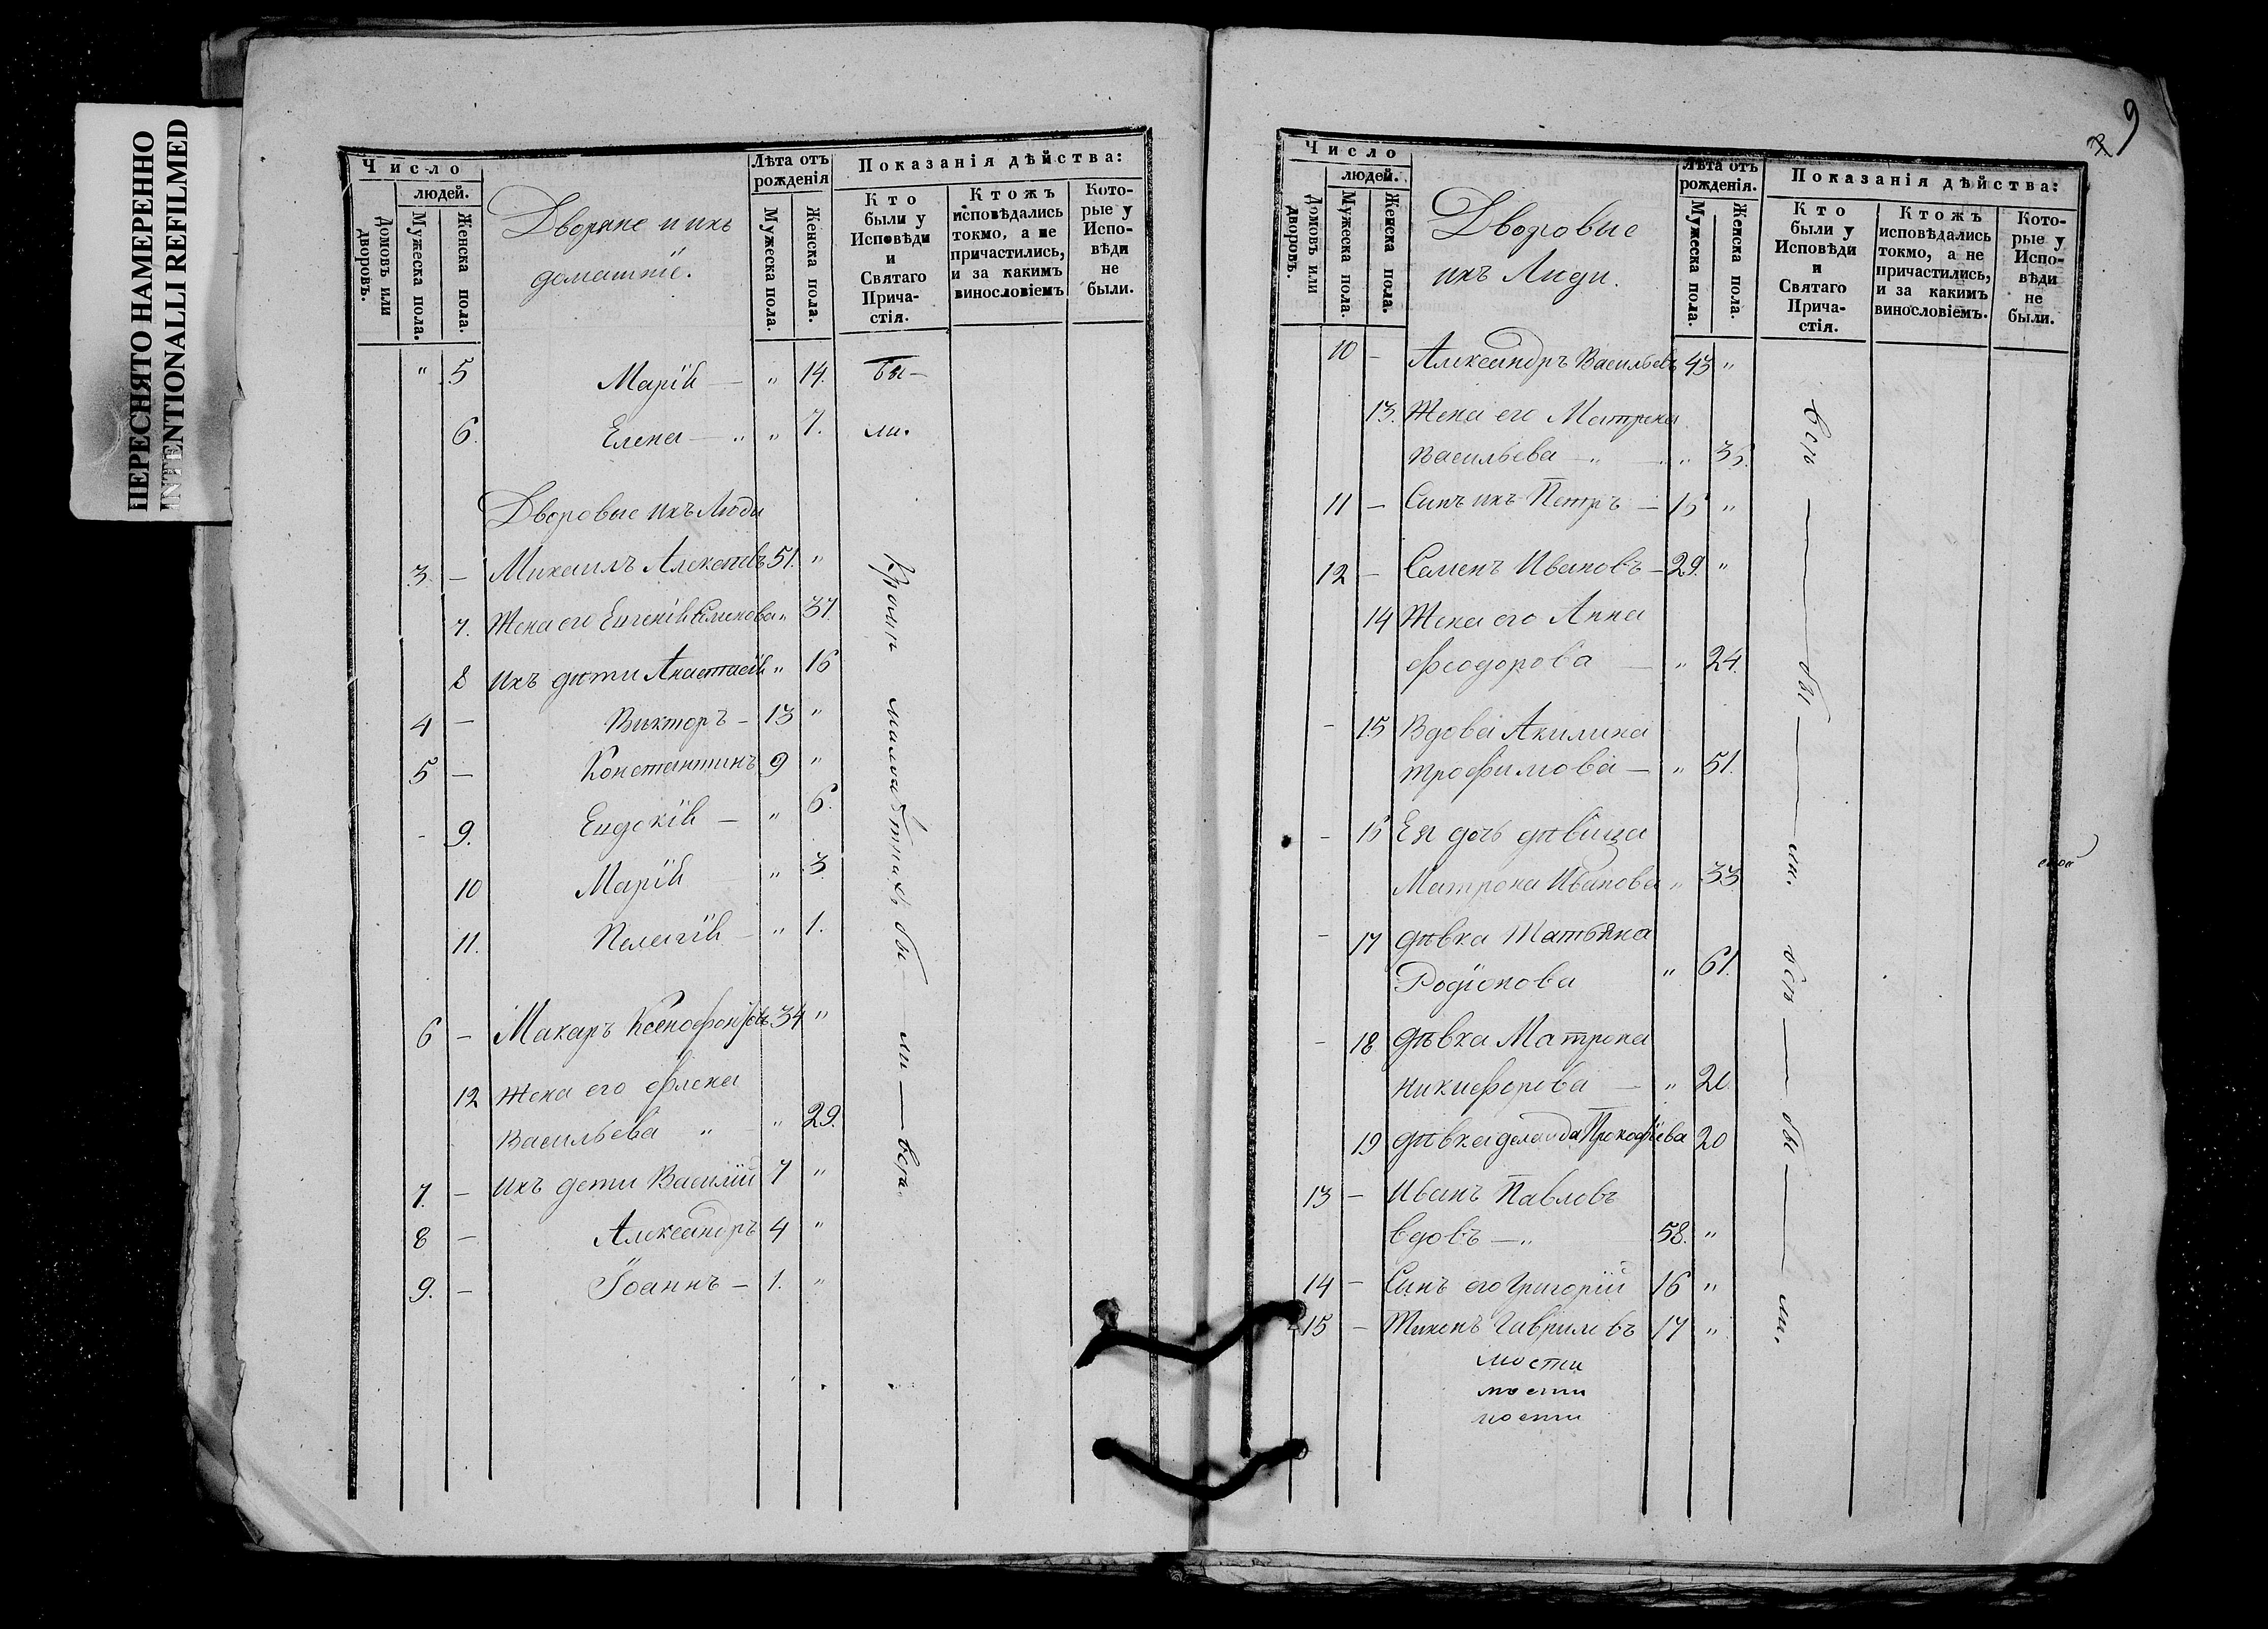 ПЕРЕСНЯТО НАМЕРЕННО
INTENTIONALLI REFILMED
Число
людей.
Домовъ или дворовъ.
Мужеска пола.
Женска пола.
Дворяне и ихъ
домашніе.
Лѣта отъ рожденія
Мужеска пола.
Женска пола.
Показанія дѣйства:
Кто были у Исповѣди и Святаго Прича-стія.
Ктожъ исповѣдались токмо, а не причастились, и за какимъ винословіемъ
Кото-рые у Испо-вѣди не были.
" 5 Марія — " 14. Бы-
6. Елена — " " 7. ли.
Дворовые ихъ люди
3. — Михаилъ Алексѣевъ 51. "
7. Жена его Евгенія Семенова " 37.
8 Ихъ дѣти Анастасія " 16
4 — Викторъ — 13 "
5 — Константинъ 9 "
- 9. Евдокія — " 6.
10 Марія " 3.
11. Пелагія — " 1.
6 — Макаръ Ксенофонтовъ 34 "
12 Жена его
Васильева " " 29.
7. — Ихъ дети Василій 7 "
8 — Александръ 4 "
9. — Іоаннъ — 1. "
Кромѣ малолѣтнихъ бы — ли — всѣ.
9
Число
людей.
Домовъ или дворовъ.
Мужеска пола.
Женска пола.
Дворовые
ихъ Люди.
Лѣта отъ рожденія.
Мужеска пола.
Женска пола.
Показанія дѣйства:
Кто были у Исповѣди и Святаго Прича-стія.
Ктожъ исповѣдались токмо, а не причастились, и за какимъ винословіемъ.
Кото-рые у Испо-вѣди не были.
10 — Александръ Васильевъ 43 "
13. Жена его Матрена
Васильева — " — " 35.
11 — Сынъ ихъ Петръ — 15 "
12 — Семенъ Ивановъ — 29. "
14 Жена его Анна
Феодорова — " 24.
- 15 Вдова Акилина
Трофимова — " 51.
- 16 Ея дочь дѣвица
Матрона Иванова " 33
- 17 Дѣвка Татьяна
Родіонова " 61.
- 18 Дѣвка Матрона
Никифорова — " 20
19 Дѣвка Прокофіева 20
13 — Иванъ Павловъ
вдовъ — " 58. "
14 — Сынъ его Григорій 16 "
15 — Тихонъ Гавриловъ 17 "
мости
мости
ности
Всѣ — бы — ли. всѣ — бы — ли.